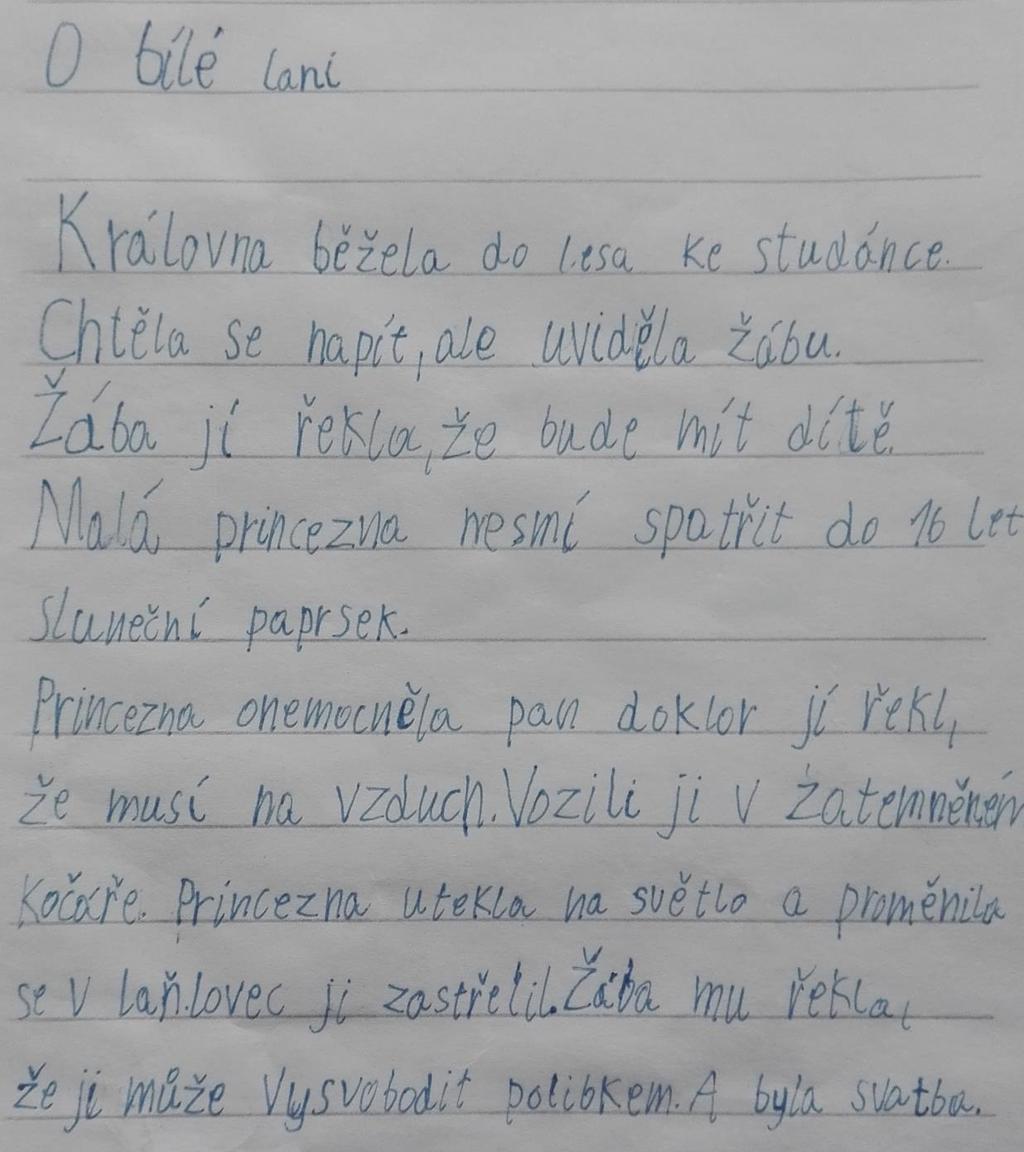 O bílé lani
Královna běžela do lesa ke studánce.
Chtěla se napít, ale uviděla žábu.
Žába jí řekla, že bude mít dítě.
Malá princezna nesmí spatřit do 16 let
sluneční paprsek.
Princezna onemocněla pan doktor jí řekl,
že musí na vzduch. Vozili ji v zatemněném
kočáře. Princezna utekla na světlo a proměnila
se v laň. lovec ji zastřelil. Žába mu řekla,
že ji může vysvobodit polibkem. A byla svatba.